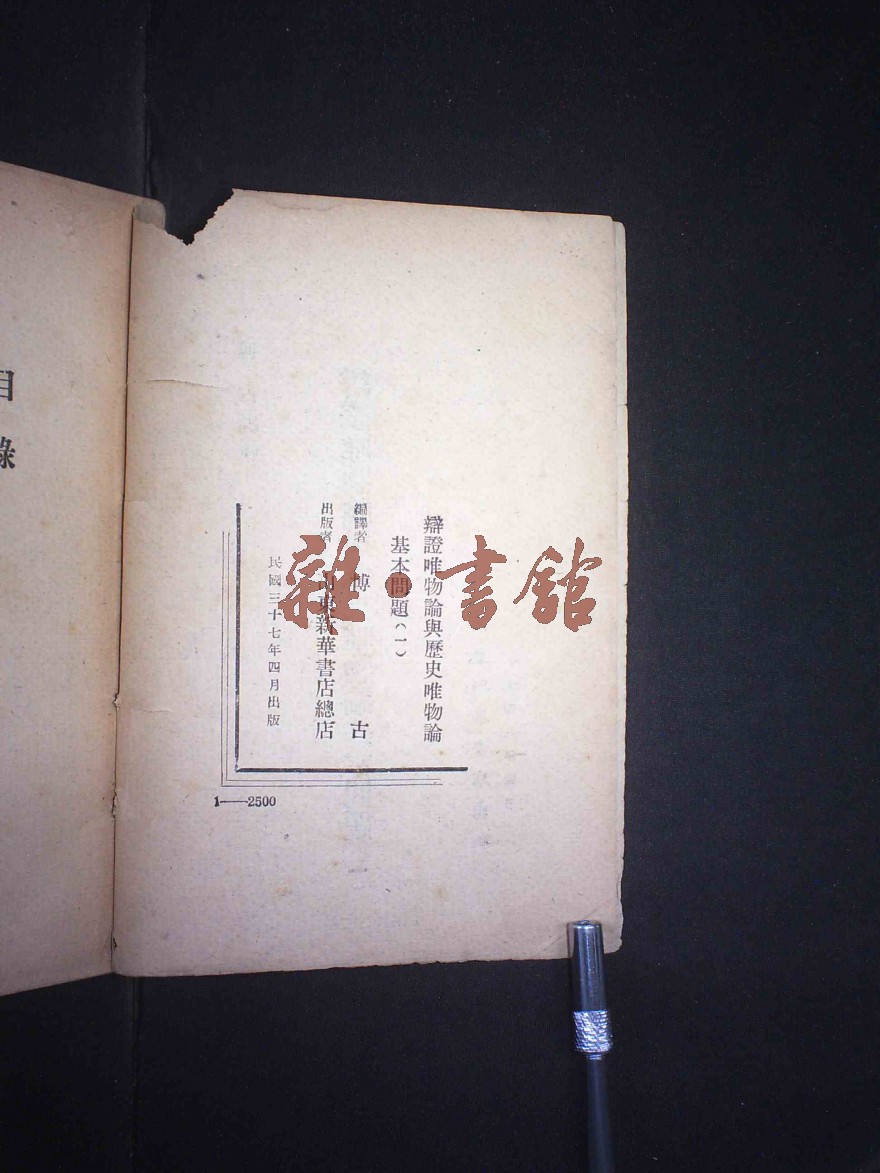 辯證唯物論與歷史唯物論
基本問題（一）
編譯者 博古
出版者 山東新華書店總店
民國三十七年四月出版
1——2500
目錄
雜·書館